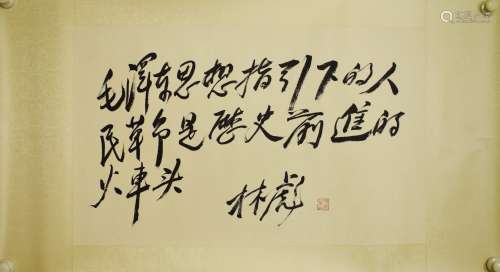 毛澤东思想指引下的人
民革命是歷史前進的
火車头
林彪